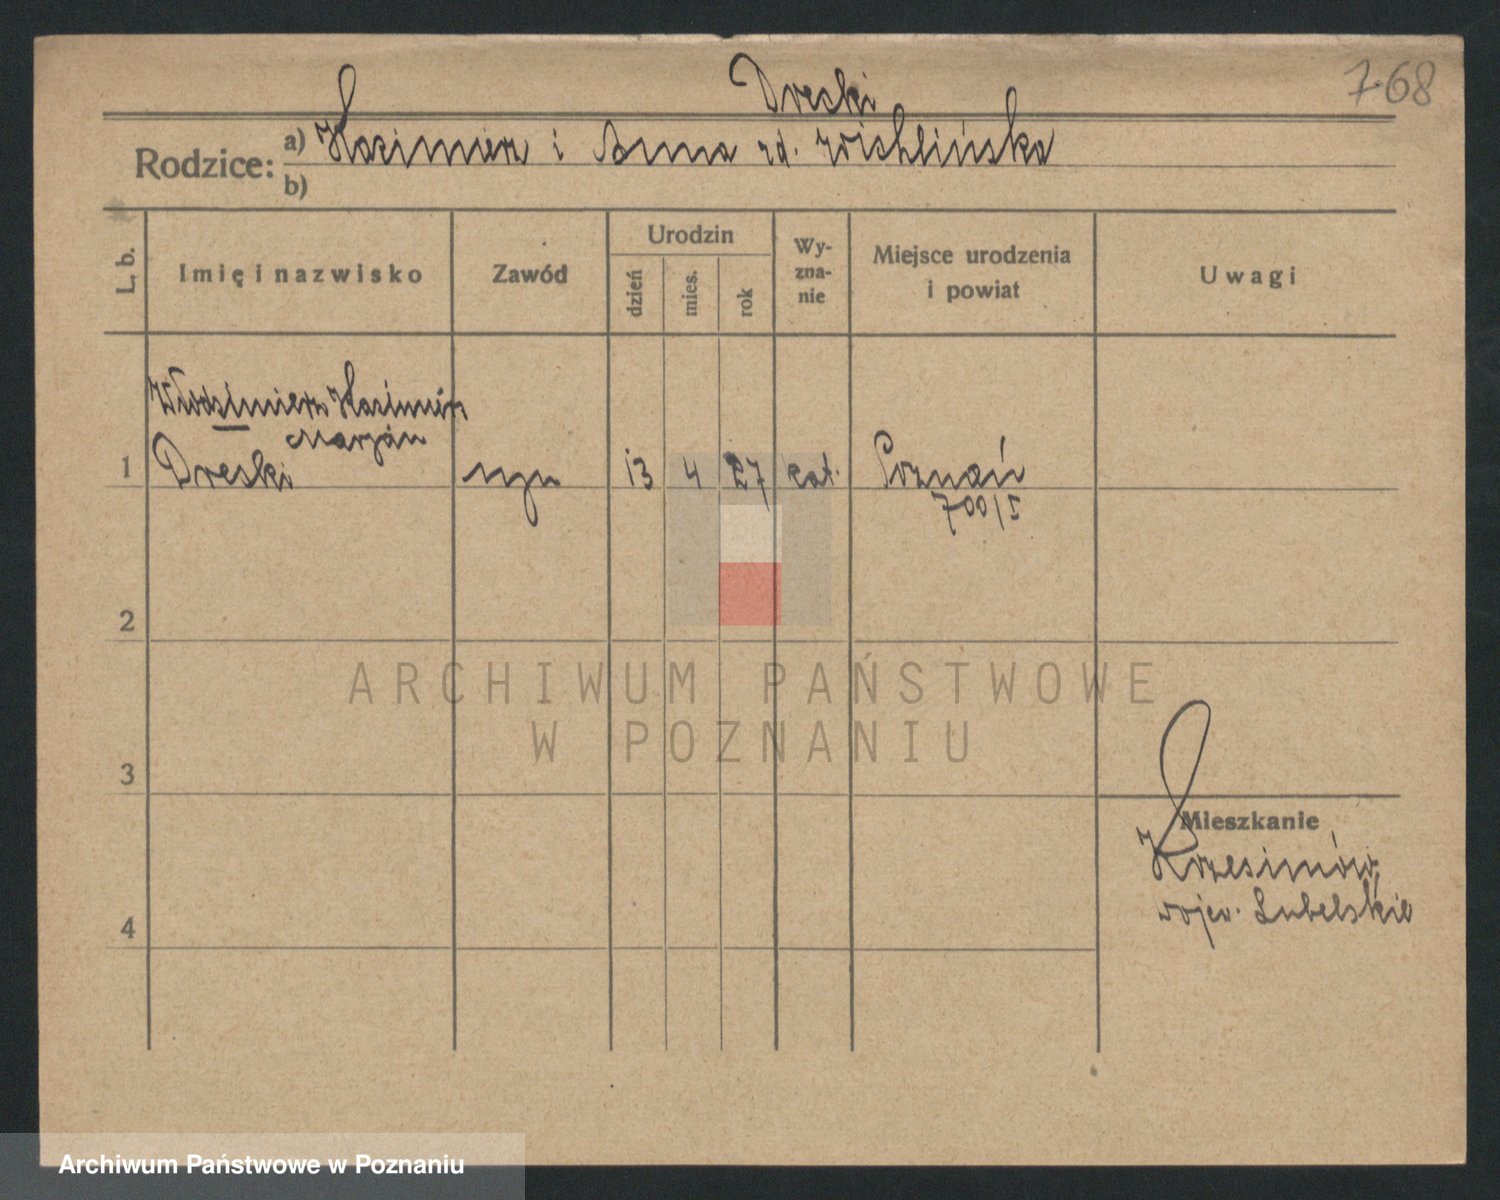 Dreski
768
Rodzice:
a) Kazimierz i Anna rd. Wichlińska
b)
L. b.
Imię i nazwisko
Zawód
Urodzin
dzień
mies.
rok
Wy-
zna-
nie
Miejsce urodzenia
i powiat
Uwagi
Włodzimierz Kazimierz
Marjan
1 Dreski syn 13 4 27 kat. Poznań
700/I
2
ARCHIWUM PAŃSTWOWE
W POZNANIU
3
Mieszkanie
Krzesimów,
wojew. Lubelskie
4
Archiwum Państwowe w Poznaniu